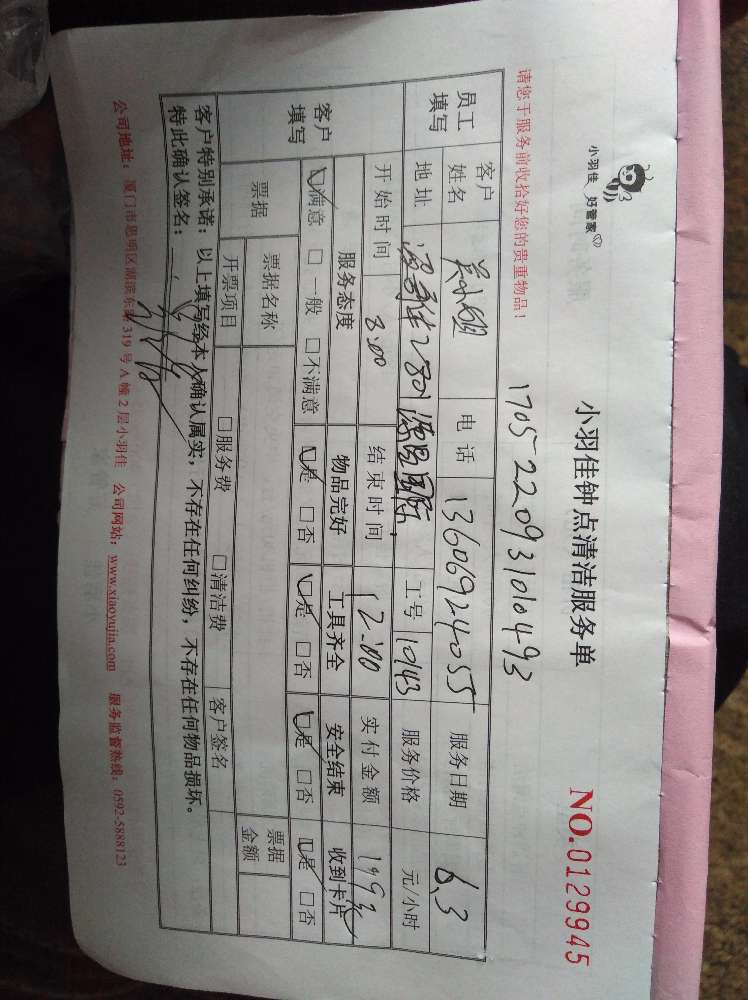 小羽佳 好管家
小羽佳钟点清洁服务单
NO.0129945
请您于服务前收拾好您的贵重物品!
1705220931010493
员工填写 客户姓名 吴小姐 电话 13606924055 服务日期 6.3
地址 2801 国际 工号 10143 服务价格 元/小时
开始时间 8:00 结束时间 12:00 实付金额
客户填写 服务态度 物品完好 工具齐全 安全结束 收到卡片
☑满意 □一般 □不满意 ☑是 □否 ☑是 □否 ☑是 □否 ☑是 □否
票据 票据名称 票据金额
开票项目 □服务费 □清洁费 客户签名
客户特别承诺:以上填写经本人确认属实,不存在任何纠纷,不存在任何物品损坏。
特此确认签名:
公司地址:厦门市思明区湖滨东路319号A幢2层小羽佳 公司网站:www.xiaoyujia.com 服务监督热线:0592-5888123